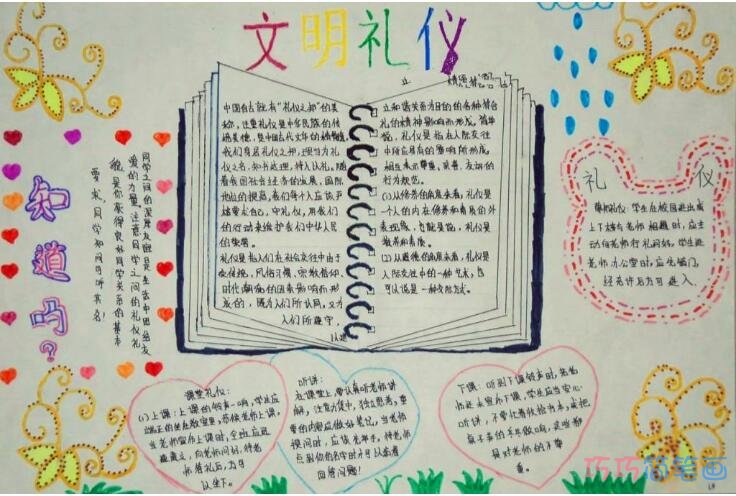 文明礼仪
中国自古就有“礼仪之邦”的美
称，注重礼仪是中华民族的传
统美德，是中国古代文华的精髓。
我们身居礼仪之邦，理当为礼
仪之名，知书达理，待人以礼。随
着我国社会经济的发展，国际
地位的提高，我们每个人应该严
格要求自己，守礼仪，用我们
的行动来维护我们中华人民
的荣誉。
礼仪是指人们在社会交往中由于
受传统，风俗习惯，宗教信仰
时代潮流的因素影响而形
成的，既为人们所认同，又为
人们所遵守，
以建
立和谐关系为目的的各种符合
礼的精神
礼仪是指在人际交往
中
相互表示尊重、亲善、友好的
行为规范。
(1)从修养的角度来看，礼仪是
一个人的内在修养和素质的外
表现，也就是说，礼仪是
教养和素质。
(2)从道德的角度来看，礼仪是
人际交往中的一种艺术，也
可以说是一种交际方式。
知道吗？
同学之间的深厚友谊是生活中团结友
爱的力量。注意同学之间的礼仪礼
貌，是你获得良好同学关系的基本
要求，同学知问可诉其名！
礼仪
尊师礼仪：学生在校园进出或
上下楼与老师相遇时，应主
动向老师行礼问好。学生进
老师办公室时，应先敲门，
经允许后方可进入。
课堂礼仪：
(1)上课：上课的铃声一响，学生应
端正的坐在教室里，恭候老师上课，
当老师宣布上课时，全班应迅
速肃立，向老师问好，待老
师答礼后，方可
坐下。
听讲：
在课堂上，要认真听老师讲
解，注意力集中，独立思考，重
要的内容应做好笔记，当老师
提问时，应该先举手，待老师
点到你的名字时才可以站着
回答问题！
下课：听到下课铃声时，若老
师还未宣布下课，学生应当安心
听讲，不要忙着收拾书本，或把
桌子弄得乒乓作响，这些都
是对老师的不尊
重。
巧巧简笔画